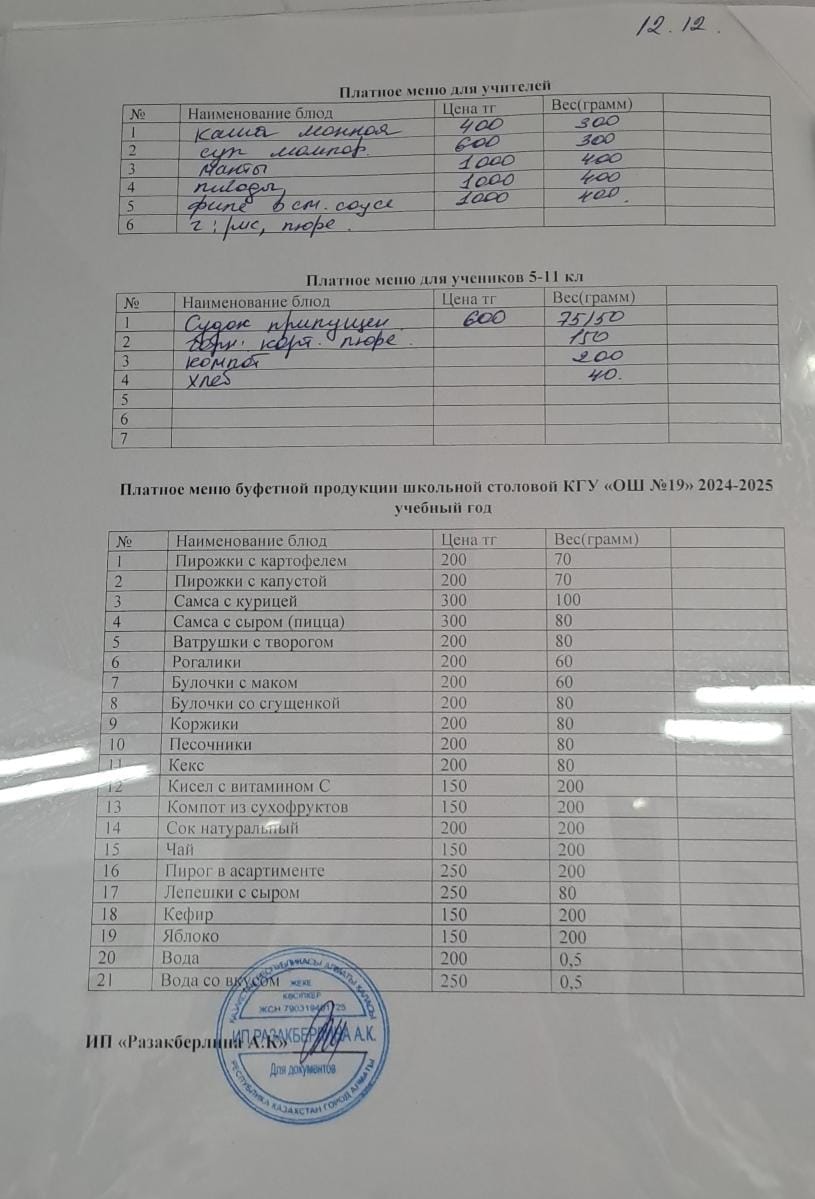 12.12.
Платное меню для учителей
№ Наименование блюд Цена тг Вес(грамм)
1 каша манная 400 300
2 суп 600 300
3 манты 1000 400
4 1000 400
5 филе в см. соусе 1000 400.
6 г: рис, пюре.
Платное меню для учеников 5-11 кл
№ Наименование блюд Цена тг Вес(грамм)
1 Судак припущен 600 75/50
2 гарн. карт. пюре. 150
3 компот 200
4 хлеб 40.
5
6
7
Платное меню буфетной продукции школьной столовой КГУ «ОШ №19» 2024-2025
учебный год
№ Наименование блюд Цена тг Вес(грамм)
1 Пирожки с картофелем 200 70
2 Пирожки с капустой 200 70
3 Самса с курицей 300 100
4 Самса с сыром (пицца) 300 80
5 Ватрушки с творогом 200 80
6 Рогалики 200 60
7 Булочки с маком 200 60
8 Булочки со сгущенкой 200 80
9 Коржики 200 80
10 Песочники 200 80
11 Кекс 200 80
12 Кисел с витамином С 150 200
13 Компот из сухофруктов 150 200
14 Сок натуральный 200 200
15 Чай 150 200
16 Пирог в асартименте 250 200
17 Лепешки с сыром 250 80
18 Кефир 150 200
19 Яблоко 150 200
20 Вода 200 0,5
21 Вода со вкусом 250 0,5
ИП «Разакберлина А.К»
ҚАЗАҚСТАН РЕСПУБЛИКАСЫ АЛМАТЫ ҚАЛАСЫ
ЖЕКЕ
КӘСІПКЕР
ИП РАЗАКБЕРЛИНА А.К.
Для документов
РЕСПУБЛИКА КАЗАХСТАН ГОРОД АЛМАТЫ